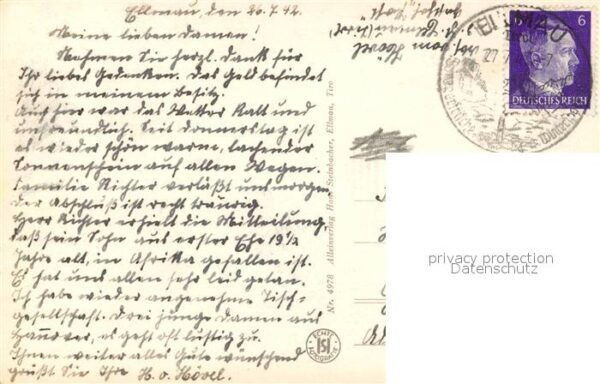 Ellmau, den 26.7.42.
Meine lieben Damen!
Nehmen Sie herzl. Dank für
Ihr liebes Gedenken. Das Geld befindet
sich in meinem Besitz.
Auch hier war das Wetter kalt und
unfreundlich. Seit Donnerstag ist
es wieder schön warm, lachender
Sonnenschein auf allen Wegen.
Familie Richter verläßt uns morgen
der Abschluß ist recht traurig.
Herr Richter erhielt die Mitteilung,
daß sein Sohn aus erster Ehe 19 1/2
Jahre alt, in Afrika gefallen ist.
Es hat uns allen sehr leid getan.
Ich habe wieder angenehme Tisch-
gesellschaft. Drei junge Damen aus
Hannover, es geht oft lustig zu.
Ihnen weiter alles Gute wünschend
grüßt Sie Ihre H. v. Hövel.
Abs. von Hövel
Ellmau (Tirol)
Gasthof „Post"
Nr. 4978 Alleinverlag Hans Steinbacher, Ellmau, Tiro
ECHTE
ISI
FOTOGRAFIE
ELLMAU
27.7
6
DEUTSCHES REICH
privacy protection
Datenschutz